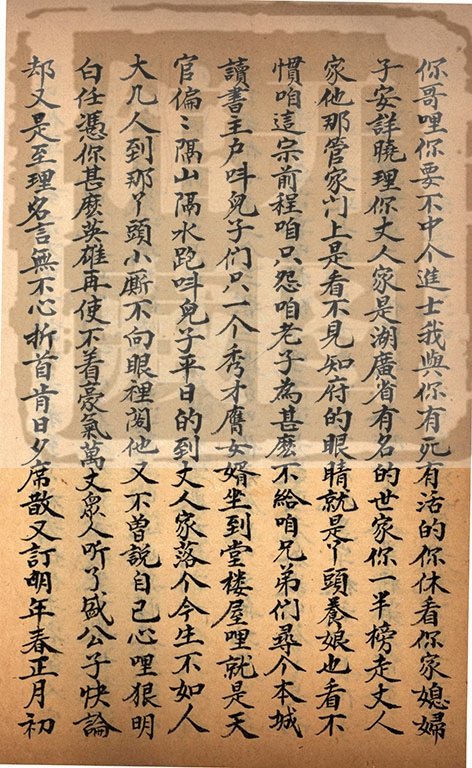 你哥哩你要不中个進士我與你有死有活的你休看你家媳婦
子安詳曉理你丈人家是湖廣省有名的世家你一半榜走丈人
家他那管家门上是看不見知府的眼睛就是丫頭養娘也看不
慣咱這宗前程咱只怨咱老子為甚麽不給咱兄弟們尋个本城
讀書主户呌兒子們只一个秀才膺女婿坐到堂楼屋哩就是天
官偏〻隔山隔水跑呌兒子平日的到丈人家落个今生不如人
大凢人到那丫頭小厮不向眼裡閣他又不曾説自己心哩狠明
白任憑你甚麽英雄再使不着豪氣萬丈衆人听了盛公子快論
却又是至理名言無不心折首肯日夕席散又訂明年春正月初